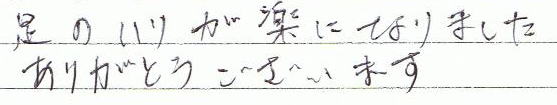 足のハリが楽になりました
ありがとうございます